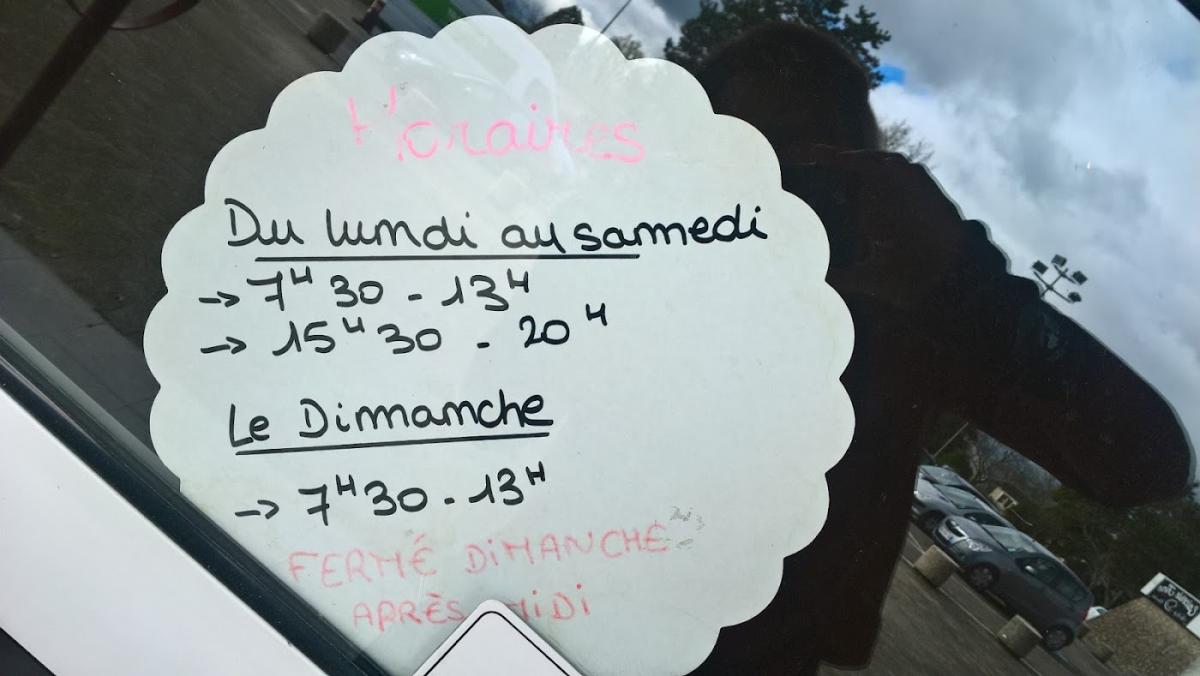 Horaires
Du lundi au samedi
→ 7H30 - 13H
→ 15H30 - 20H
Le Dimanche
→ 7H30 - 13H
FERMÉ DIMANCHE
APRÈS MIDI